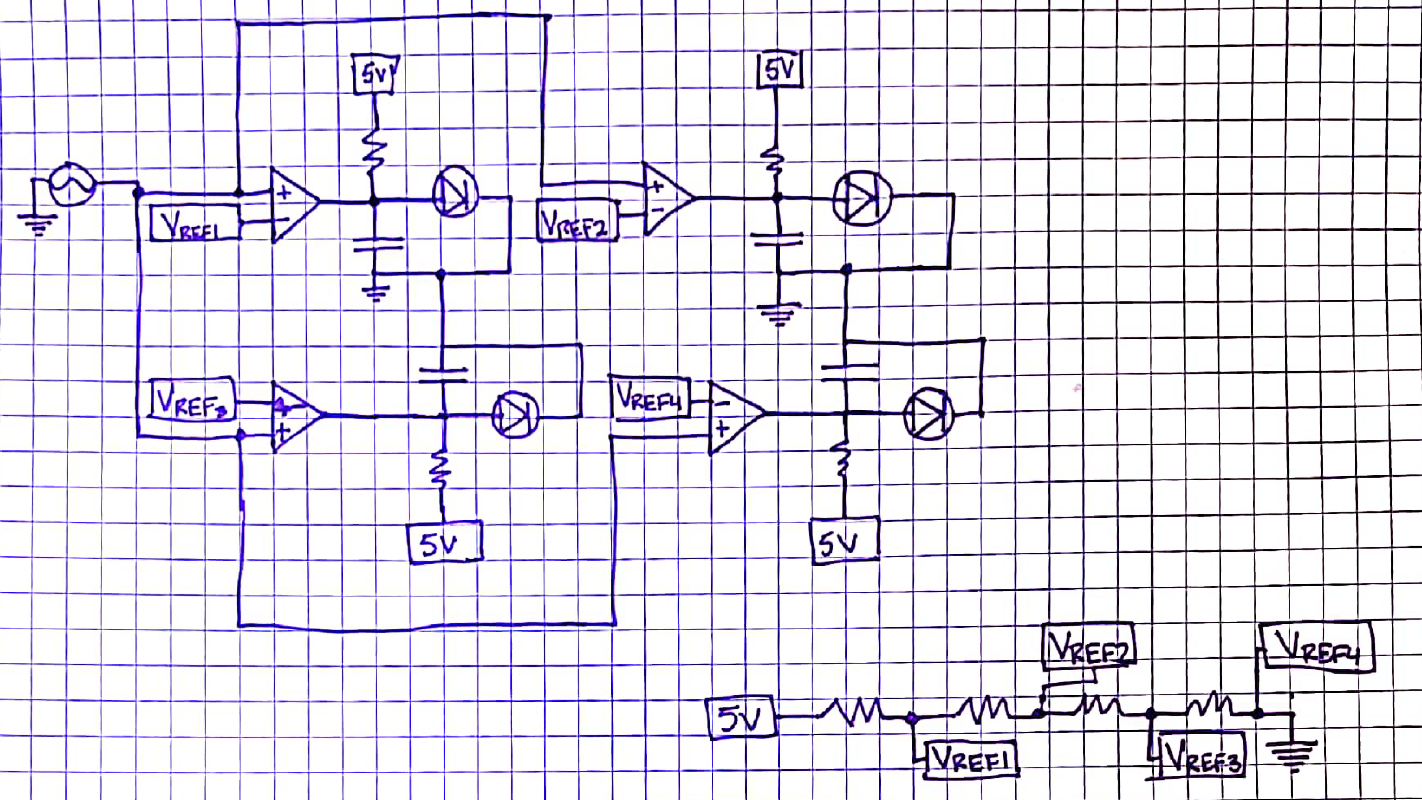 5V
5V
+
-
VREF1
+
-
VREF2
VREF3
+
VREF4
-
+
5V
5V
VREF2
VREF4
5V
VREF1
VREF3